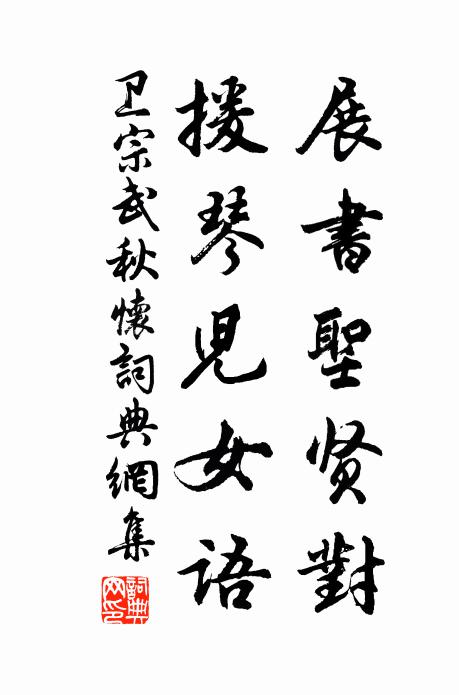 展書聖贤對
援琴児女语
卫宗武秋懷詞典網集
詞典网印